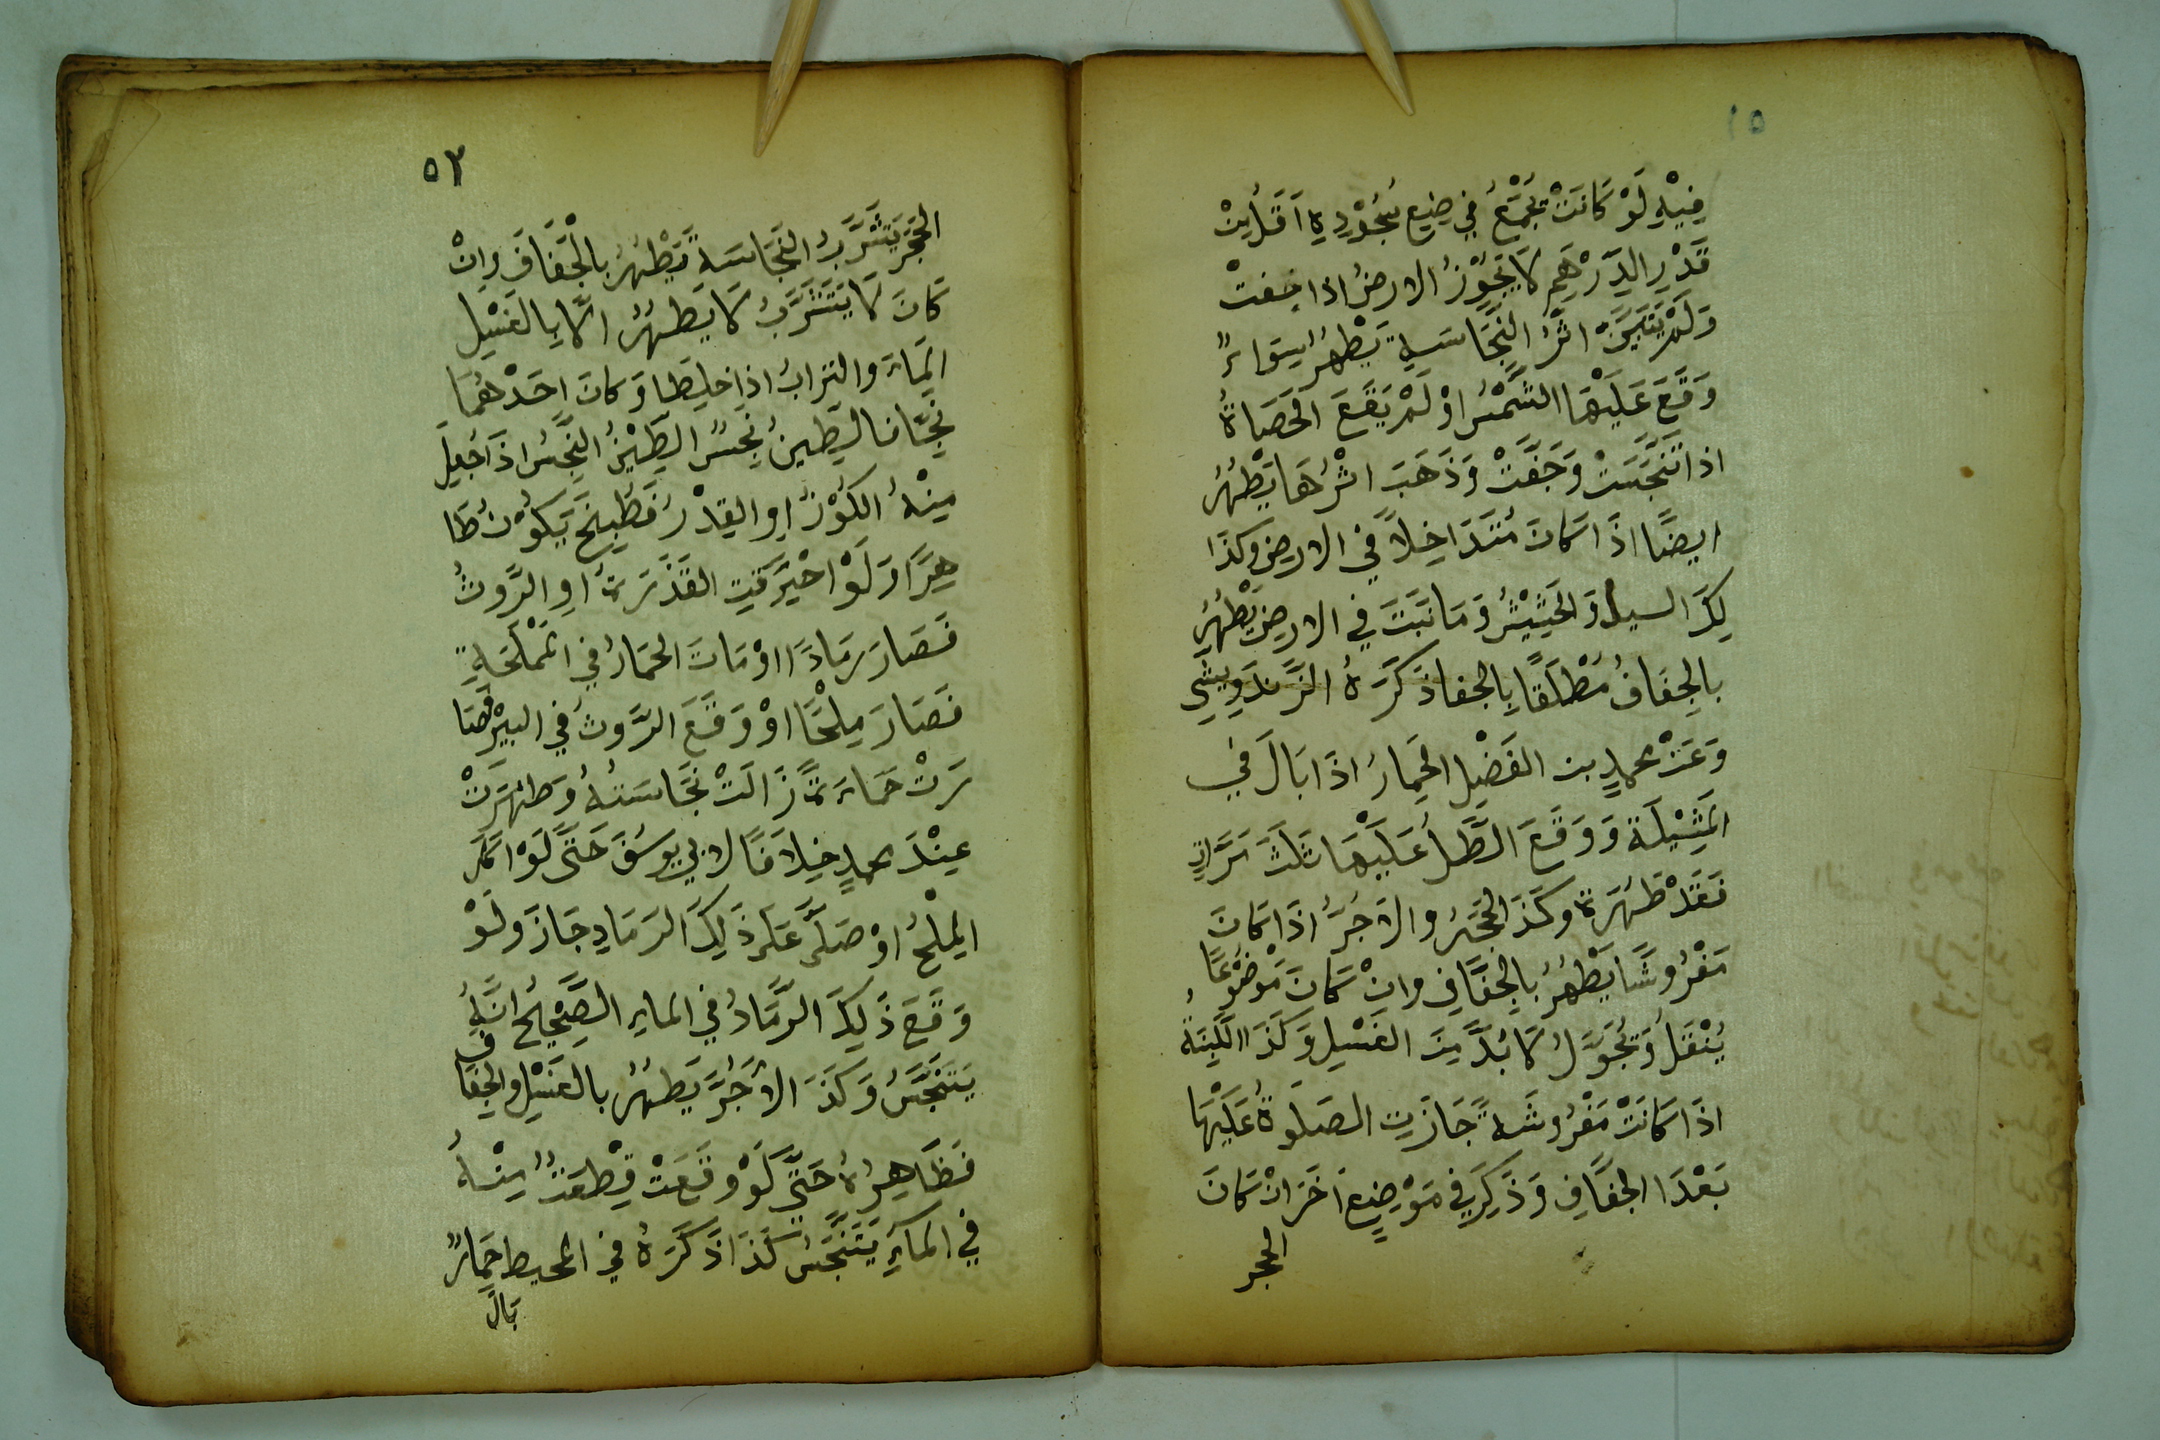 ٥١
فِيْهِ لَوْ كَانَتْ تُجْمَعُ فِي ضِعِ سُجُوْدِهِ اَقَلُّ مِنْ
قَدْرِ الدِّرْهَمِ لَا يَجُوْزُ الارضُ اذا جفتْ
وَلَمْ يَتَبَيَّنْ اثَرُ النِّجَاسَةِ يَطْهُرُ سِوَاءٌ
وَقَعَ عَلَيْهَا الشَّمْسُ اوْ لَمْ يَقَعَ الحَصَاةُ
اذا تَنَجَّسَتْ وَجَفَّتْ وَذَهَبَ اثْرُهَا يَطْهُرُ
ايضًا اذَا كَانَ مُتَدَاخِلاً في الارضِ وكذَا
لِكَ السيل وَالحَشِيْشُ وَمَا نَبَتَ فِي الارضِ يَطْهُرُ
بالجِفَافُ مُطْلَقًا بِالجفا ذَكَرَهُ الزَّنْدَوِيشِي
وَعَنْ محمدٍ بن الفَضْلِ الحِمارُ اذَا بَالَ في
المَثِيْلَة وَوَقَعَ الطَّلُ عَلَيْهَا ثَلَثَ مَرَّاتٍ
فَقَدْ طَهُرَة وكَذَ الحَجَرُ والاجُرُّ اذَا كَانَ
مَفْرُوشًا يَطْهُرُ بالجَفَّافِ وانْ كَانَ مَوْضُوْعًا
يُنْقَلُ وَيُحَوَّلُ لَا بُدَّ مِنَ الغَسْلِ وَكَذَا اللَّبِنَةُ
اذَا كَانَتْ مَفْرُوشَةً جَازَتِ الصَلَوةُ عَلَيْهَا
بَعْدَا الجفَّافِ وَذَكِرَ فِي مَوْضِعٍ اَخَرَ انْ كَانَ
الحجر
٥٢
الحَجَرُ يَتَشَرَّبُ النَجَاسَةَ يَطْهُرُ بالْجَفَافَ وانْ
كَانَ لَا يَتَشَرَّبُ لَا يَطهُرُ الَّا بِالغَسْلِ
المَاءُ والترابُ اذا خلِطَا وَكانَ احَدْهُمَا
نِجسًا فالطِينُ نِجسٌ الطِّيْنُ النَّجِسُ اذَا جُعِلَ
مِنْهُ الكُوْزُ اوِ القِدْرُ فَطُبِخَ يَكُوْنُ طَا
هِرًا وَلَوْ احْتَرَقَتِ القَذْرَةُ اوِ الرَّوثُ
فَصَارَ رَمَادًا اوْ مَاتَ الحمَارُ فِي المَمْلَحَةِ
فَصَارَ مِلْحًا اوْ وَقَعَ الرَّوثُ فِي البِيْرِ فَصَا
رَتْ حَمَاءَةً زَالَتْ نَجَاسَتُهُ وَطَهُرَتْ
عِنْدَ محمدٍ خِلافًا لابي يوسُفَ حَتَّى لَوْ اكَلَ
المِلْحُ اوْ صَلَّى عَلَى ذَلِكَ الرَمَادِ جَازَ وَلَوْ
وَقَعَ ذَلِكَ الرَّمَادُ في الماءِ الصَّحِيْحُ انَّهُ
يَتَنَجَّسُ وَكَذَ الاجُرَّ يَطهُرُ بالغَسْلِ والجِفَا
ف
فَظَاهِرُهُ حَتَّى لَوْ وقَعَتْ قِطْعَتٌ مِنْهُ
فِي المَآءِ يَتَنَجَّسُ كَذَا ذَكَرَهُ فِي المحيط حِمَارٌ
بَالَ